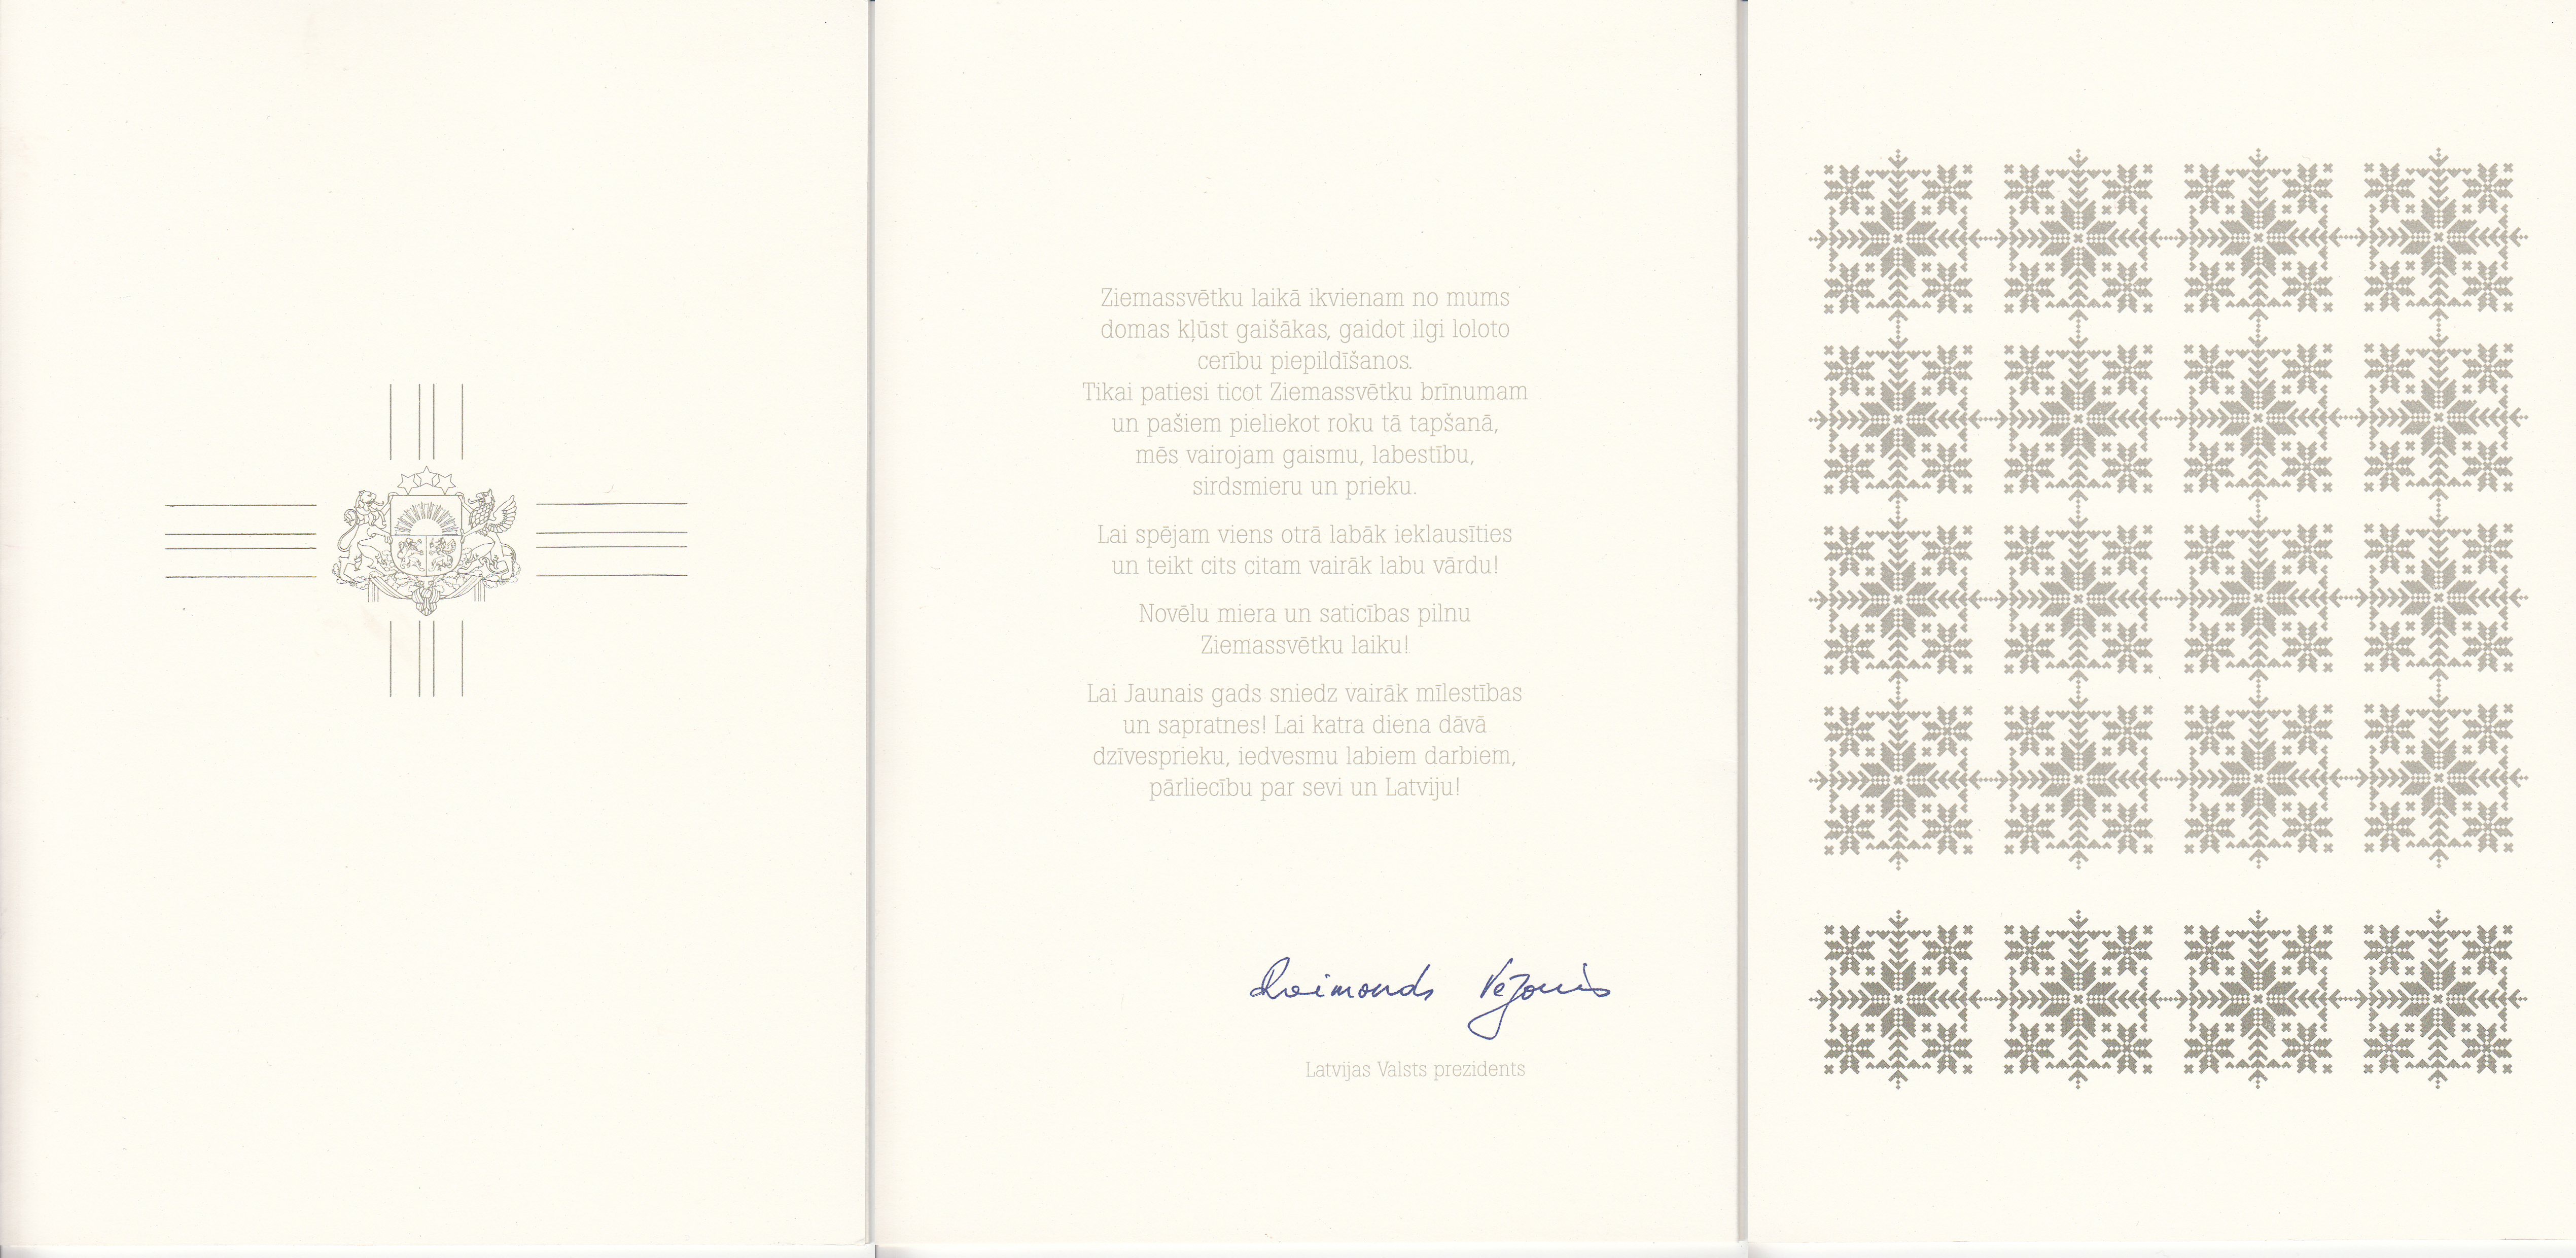 Ziemassvētku laikā ikvienam no mums
domas kļūst gaišākas, gaidot ilgi loloto
cerību piepildīšanos.
Tikai patiesi ticot Ziemassvētku brīnumam
un pašiem pieliekot roku tā tapšanā,
mēs vairojam gaismu, labestību,
sirdsmieru un prieku.
Lai spējam viens otrā labāk ieklausīties
un teikt cits citam vairāk labu vārdu!
Novēlu miera un saticības pilnu
Ziemassvētku laiku!
Lai Jaunais gads sniedz vairāk mīlestības
un sapratnes! Lai katra diena dāvā
dzīvesprieku, iedvesmu labiem darbiem,
pārliecību par sevi un Latviju!
Raimonds Vējonis
Latvijas Valsts prezidents